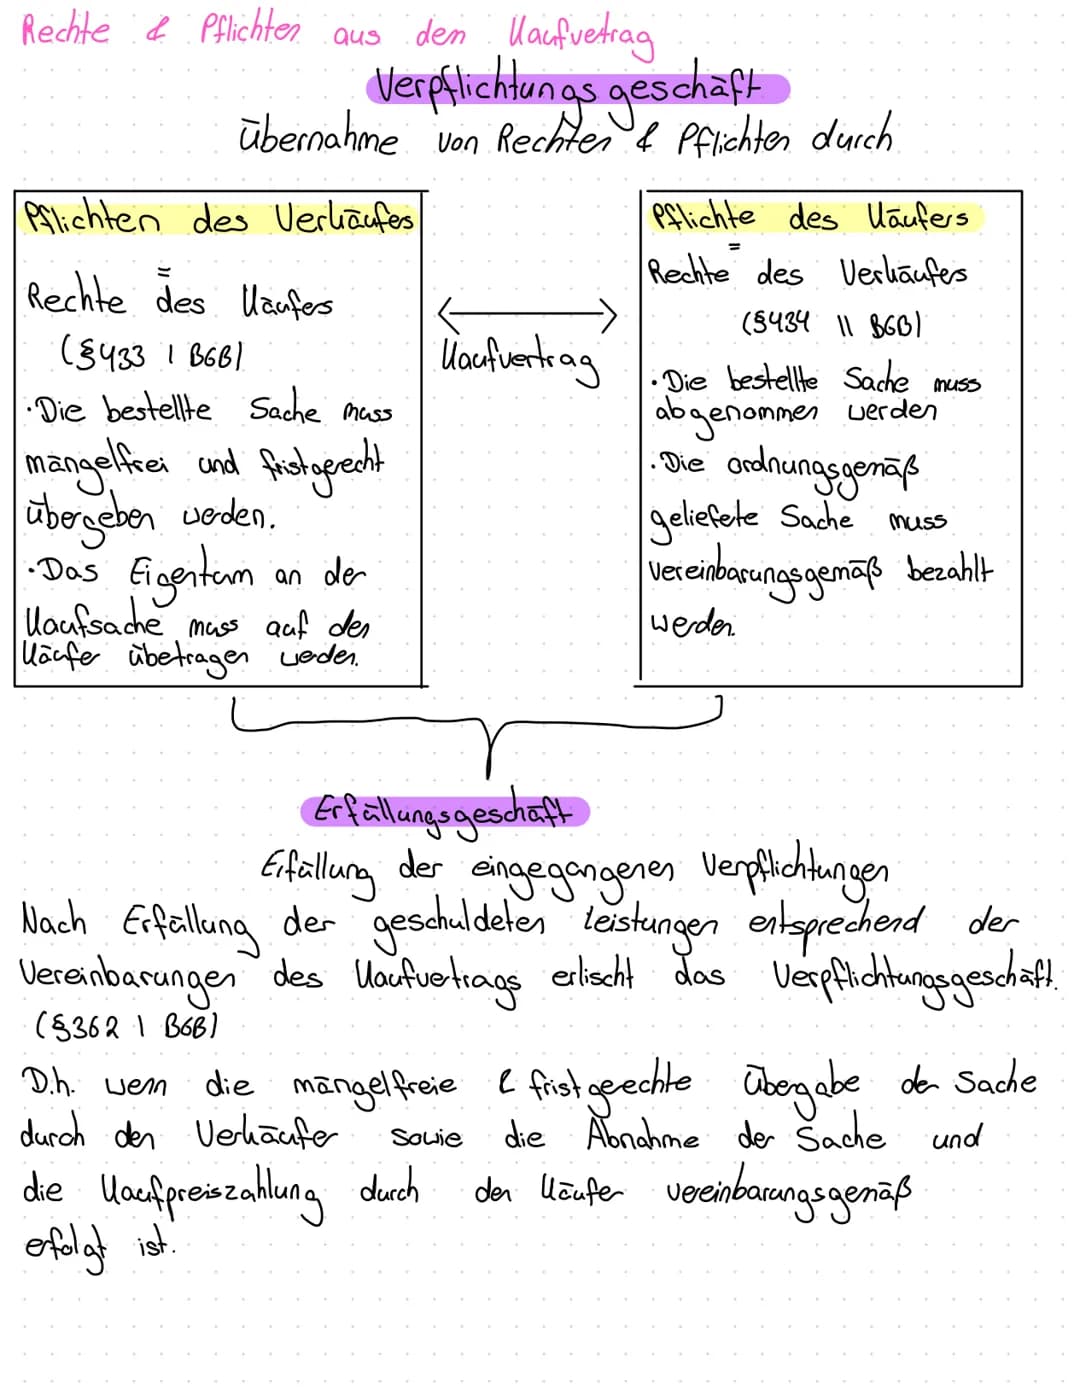 Rechte & Pflichten aus dem Kaufvetrag
Verpflichtungsgeschäft
Übernahme von Rechten & Pflichten durch
Pflichten des Verkäufers
=
Rechte des Käufers
(§433 I BGB)
·Die bestellte Sache muss
mängelfrei und fristgerecht
übergeben werden.
·Das Eigentum an der
Kaufsache muss auf den
Käufer übetragen weden.
Kaufvertrag
Pflichte des Käufers
=
Rechte des Verkäufers
(§434 II BGB)
·Die bestellte Sache muss
abgenommen werden
·Die ordnungsgemäß
geliefete Sache muss
Vereinbarungsgemäß bezahlt
werden.
Erfüllungsgeschäft
Erfüllung der eingegangenen Verpflichtungen
Nach Erfüllung der geschuldeten Leistungen entsprechend der
Vereinbarungen des Kaufvertrags erlischt das Verpflichtungsgeschäft.
(§362 I BGB)
D.h. wenn die mängelfreie & fristgerechte Übergabe der Sache
durch den Verkäufer sowie die Abnahme der Sache und
die Kaufpreiszahlung durch den Käufer vereinbarungsgemäß
erfolgt ist.